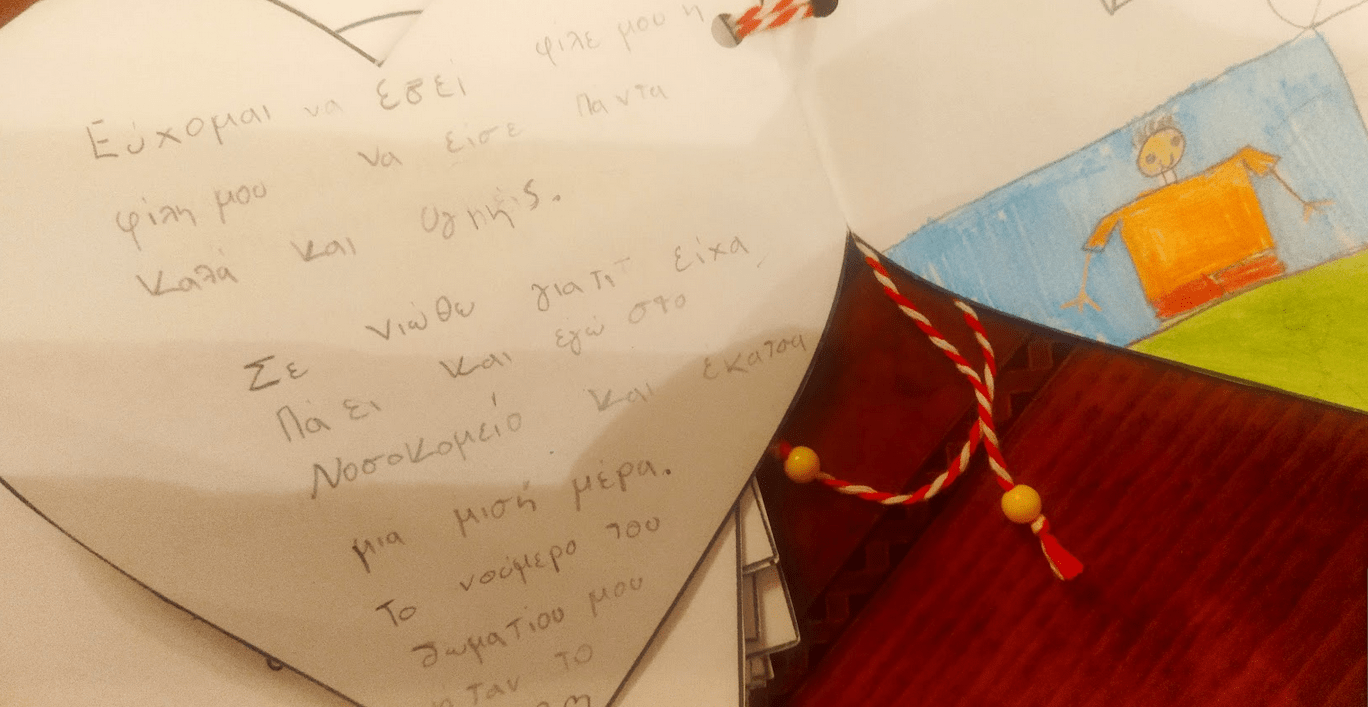 Εύχομαι να εσεί φίλε μου η
φίλη μου να είσε παντα
καλά και υγηής.
Σε νιώθω γιατί είχα
Πάει και εγώ στο
Νοσοκομείο και έκατσα
μια μισή μέρα.
Το νούμερο του
δωματίου μου
ηταν το